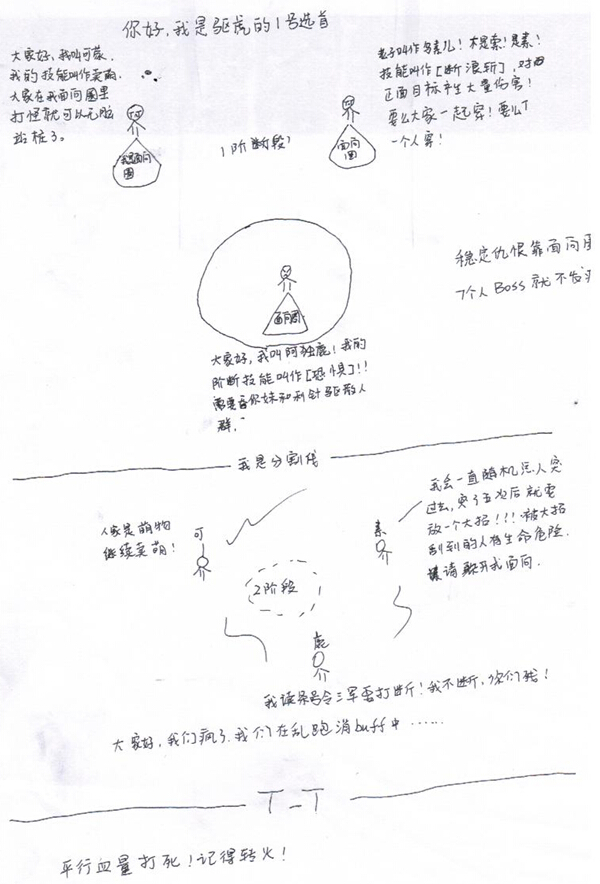 你好,我是驱虎的1号选首
大家好,我叫可蒙.
我的技能叫作卖萌.
大家在我面向圈里
打怪就可以无脑
站桩了.
面向
圈
1阶断段
老子叫作多素儿!不是索!是素!
技能叫作[断浪斩],对
正面目标产生大量伤害!
要么大家一起穿!要么T
一个人穿!
面向
圈
稳定仇恨靠面向
7个人Boss就不
面向圈
大家好,我叫阿独鹿!我的
阶断技能叫作[恐惧]!!
需要奋你妹和利针驱散人
群.
我是分割线
人家是萌物
继续卖萌!
可
素
我会一直随机
过去,突了五次后就要
放一个大招!!!被大招
刮到的人有生命危险.
请躲开我面向.
2阶段
鹿
我读条号令三军要打断!我不断,你们死!
大家好,我们疯了.我们在乱跑消buff中……
T-T
平行血量打死!记得转火!